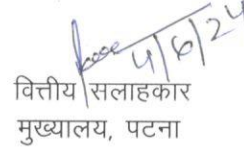 4/6/24
वित्तीय सलाहकार
मुख्यालय, पटना